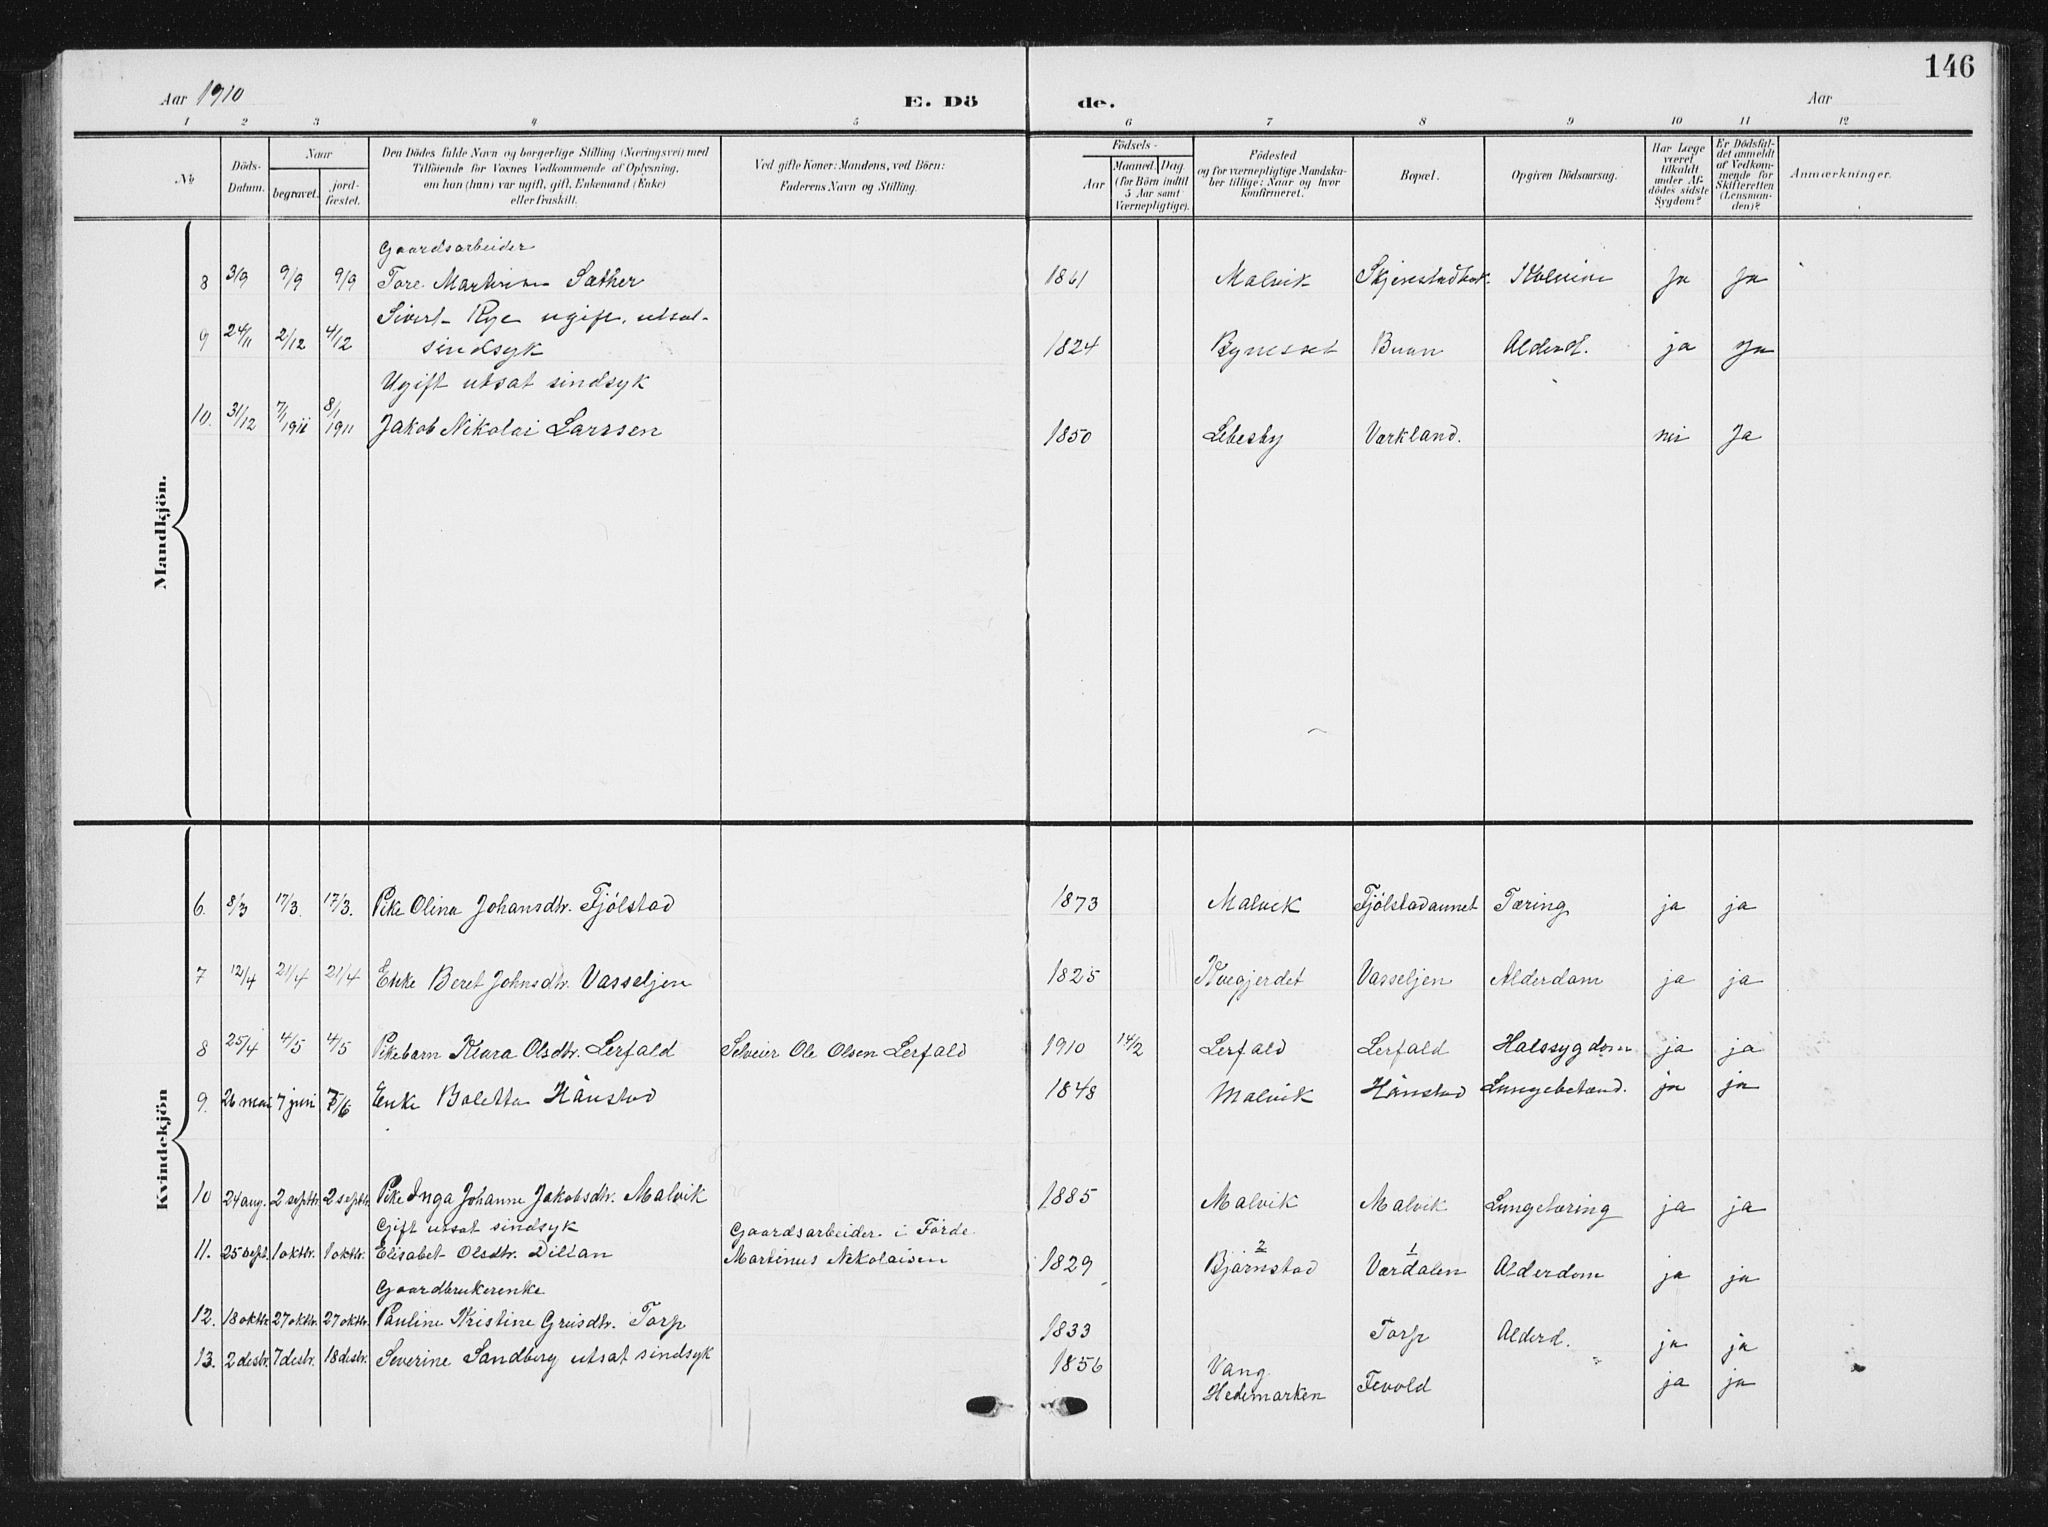 146
Aar 1910
E. Dö
de.
Aar
1 2 3 4 5 6 7 8 9 10 11 12
No
Döds-Datum.
Naar
begravet.
jord-fæstet.
Den Dödes fulde Navn og borgerlige Stilling (Næringsvei) med
Tilföiende for Voxnes Vedkommende af Oplysning,
om han (hun) var ugift, gift, Enkemand (Enke)
eller fraskilt.
Ved gifte Koner: Mandens, ved Börn:
Faderens Navn og Stilling.
Födsels-
Aar
Maaned. Dag.
(for Börn indtil
5 Aar samt
Værnepligtige).
Födested
og for værnepligtige Mandska-
ber tillige: Naar og hvor
konfirmeret.
Bopæl.
Opgiven Dödsaarsag.
Har Læge
været
tilkaldt
under Af-
dödes sidste
Sygdom?
Er Dödsfal-
det anmeldt
af Vedkom-
mende for
Skifteretten
(Lensman-
den)?
Anmærkninger.
Mandkjön.
Gaardsarbeider
8 3/9 9/9 9/9 Tore Martin Sæther 1861 Malvik Ja Ja
Sivert Rye ugift, utsat
9 24/11 2/12 4/12 sindsyk 1824 Bynesset Buan Alderd. ja Ja
Ugift utsat sindsyk
10. 31/12 7/1 1911 8/1 1911 Jakob Nikolai Larssen 1850 Lebesby Værkland. nei Ja
Kvindekjön
6. 8/3 17/3. 17/3. Pike Olina Johansdtr. Fjölstad 1873 Malvik Fjölstadaunet Tæring ja ja
7 12/4 21/4 21/4 Enke Beret Johnsdtr. Vasseljen 1825 Vasseljen Alderdom ja ja
8 25/4 4/5 4/5 Pikebarn Klara Olsdtr. Lerfald Selveier Ole Olsen Lerfald 1910 14/2 Lerfald Lerfald Halssygdom ja ja
9. 26 mai 7 juni 7/6 Enke Boletta Hånstad 1848 Malvik Hånstad Lungebetænd. ja ja
10 24 aug. 2 septbr. 2 septbr. Pike Inga Johanne Jakobsdtr. Malvik 1885 Malvik Malvik Lungetæring ja ja
Gift utsat sindsyk Gaardsarbeider i Förde
11. 25 sept. 1 oktbr. 1 oktbr. Elisabet Olsdtr. Dillan Martinus Nikolaisen 1829 2 Bjärnstad 1 Værdalen Alderdom ja ja
Gaardbrukerenke
12. 18 oktbr. 27 oktbr. 27 oktbr. Pauline Kristine Greisdtr. Torp 1833 Torp Alderd. ja ja
13. 2 desbr. 7 desbr. 18 desbr. Severine Sandberg utsat sindsyk 1856 Vang
Hedemarken Fevold ja ja